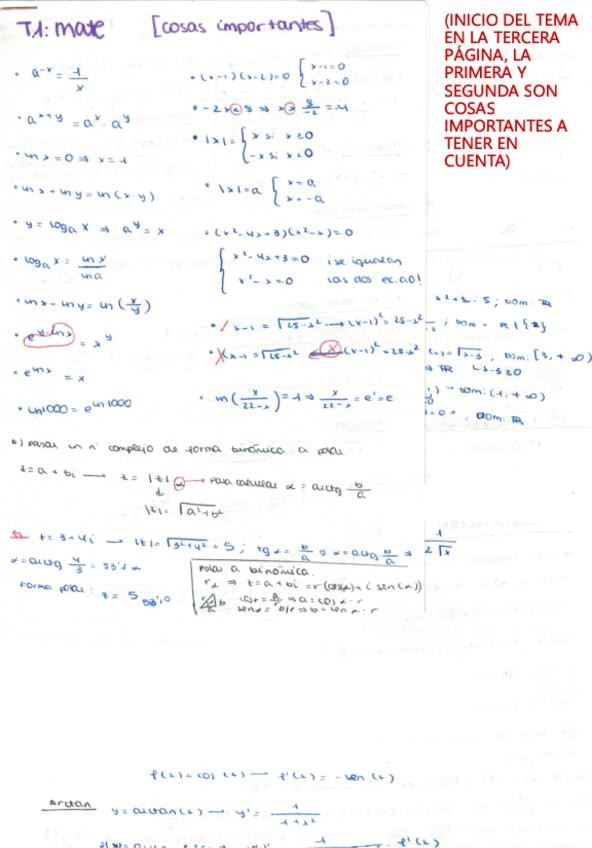 T.1: mate [cosas importantes]
(INICIO DEL TEMA
EN LA TERCERA
PÁGINA, LA
PRIMERA Y
SEGUNDA SON
COSAS
IMPORTANTES A
TENER EN
CUENTA)
• a^-x = 1/x
• a^x+y = a^x · a^y
• ln x = 0 ⇒ x = 1
• ln x + ln y = ln (x·y)
• y = log_a x ⇒ a^y = x
• log_a x = ln x / ln a
• ln x - ln y = ln (x/y)
• e^y·ln x = x^y
• e^ln x = x
• ln 1000 = e^ln 1000
• (x-1)(x-2)=0 { x-1=0
x-2=0
• -2x < 8 ⇒ x > 8/-2 = -4
• |x| = { x si x ≥ 0
-x si x < 0
• |x| = a { x = a
x = -a
• (x²-4x+3)(x²-x)=0
{ x²-4x+3=0 ¡se igualan
x²-x=0 las dos ec. a 0!
• ✓ x-1 = √25-x² → (x-1)² = 25-x²
• X x-1 = √25-x² (x-1)² = 25-x²
• ln (x/22-x) = 1 ⇒ x/22-x = e¹ = e
; Dom: ℝ
; Dom = ℝ \ {2}
= √x-3 ; Dom: [3, +∞)
⇒ ℝ ↳ x-3≥0
→ Dom: (1, +∞)
Dom: ℝ
•) Pasar un nº complejo de forma binómica a polar
z = a + bi → z = |z| α → Para calcular α = arctg b/a
↓
|z| = √a²+b²
z = 3+4i → |z| = √3²+4² = 5 ; tg α = b/a ⇒ α = arctg b/a ⇒
α = arctg 4/3 = 53'1
Forma polar: z = 5 53'10
1/2√x
Polar a binómica.
r α ⇒ z = a + bi = r (cos(α) + i sen(α))
cos α = a/r ⇒ a = cos α · r
sen α = b/r ⇒ b = sen α · r
f(x) = cos (x) → f'(x) = -sen (x)
Arctan y = arctan(x) → y' = 1/1+x²
f'(x)